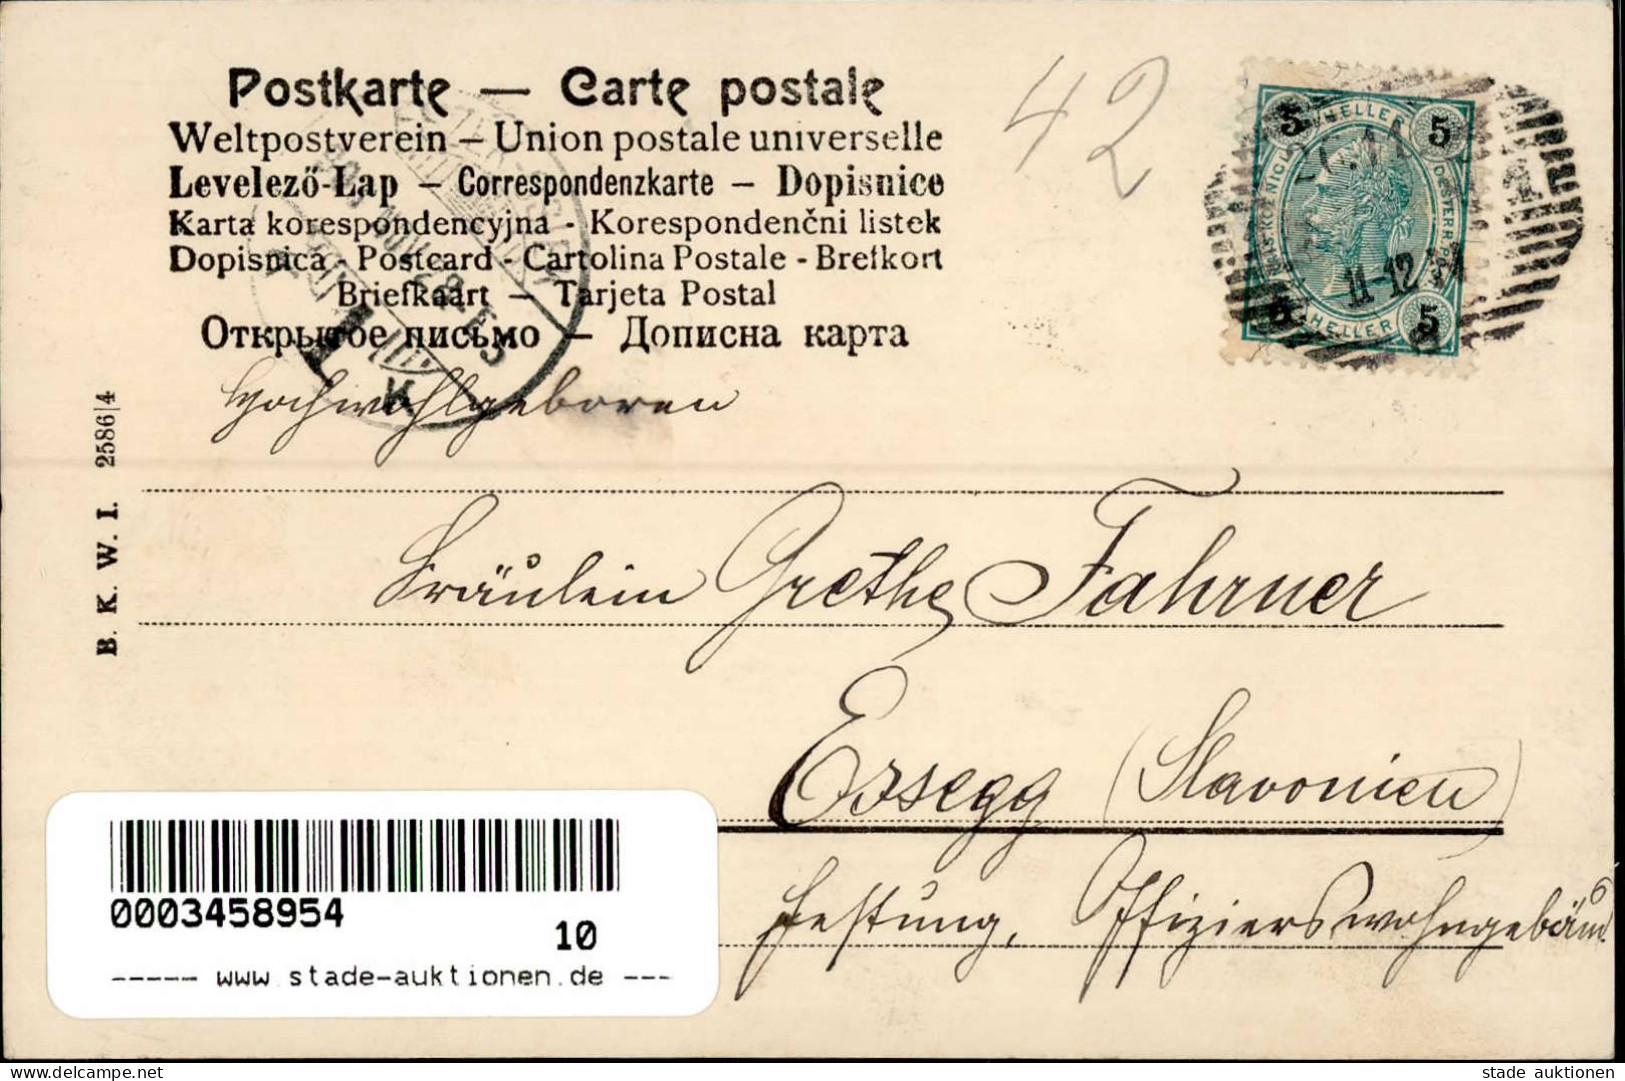 Postkarte — Carte postale
Weltpostverein – Union postale universelle
Levelező-Lap – Correspondenzkarte – Dopisnice
Karta korespondencyjna - Korespondenčni listek
Dopisnica - Postcard - Cartolina Postale - Brefkort
Briefkaart — Tarjeta Postal
Открытое письмо — Дописна карта
42
5 HELLER 5
11-12
5 HELLER 5
B. K. W. I. 2586|4
Hochwohlgeboren
Fräulein Grethe Fahrner
Essegg (Slavonien)
Festung, Offizierswohngebäud.
0003458954
10
----- www.stade-auktionen.de ---
delcampe.net
stade auktionen